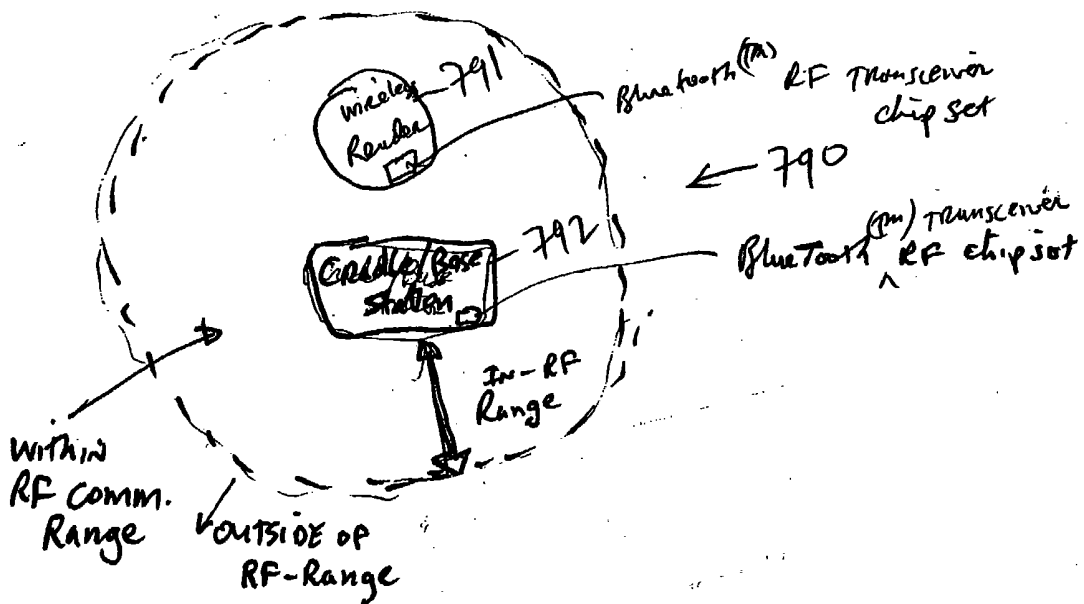 wireless
Reader
791
Bluetooth (TM) RF Transceiver
chip set
790
Cradle/Base
Station
792
BlueTooth (TM) Transceiver
^ RF chip set
In-RF
Range
Within
RF Comm.
Range
OUTSIDE OF
RF-Range